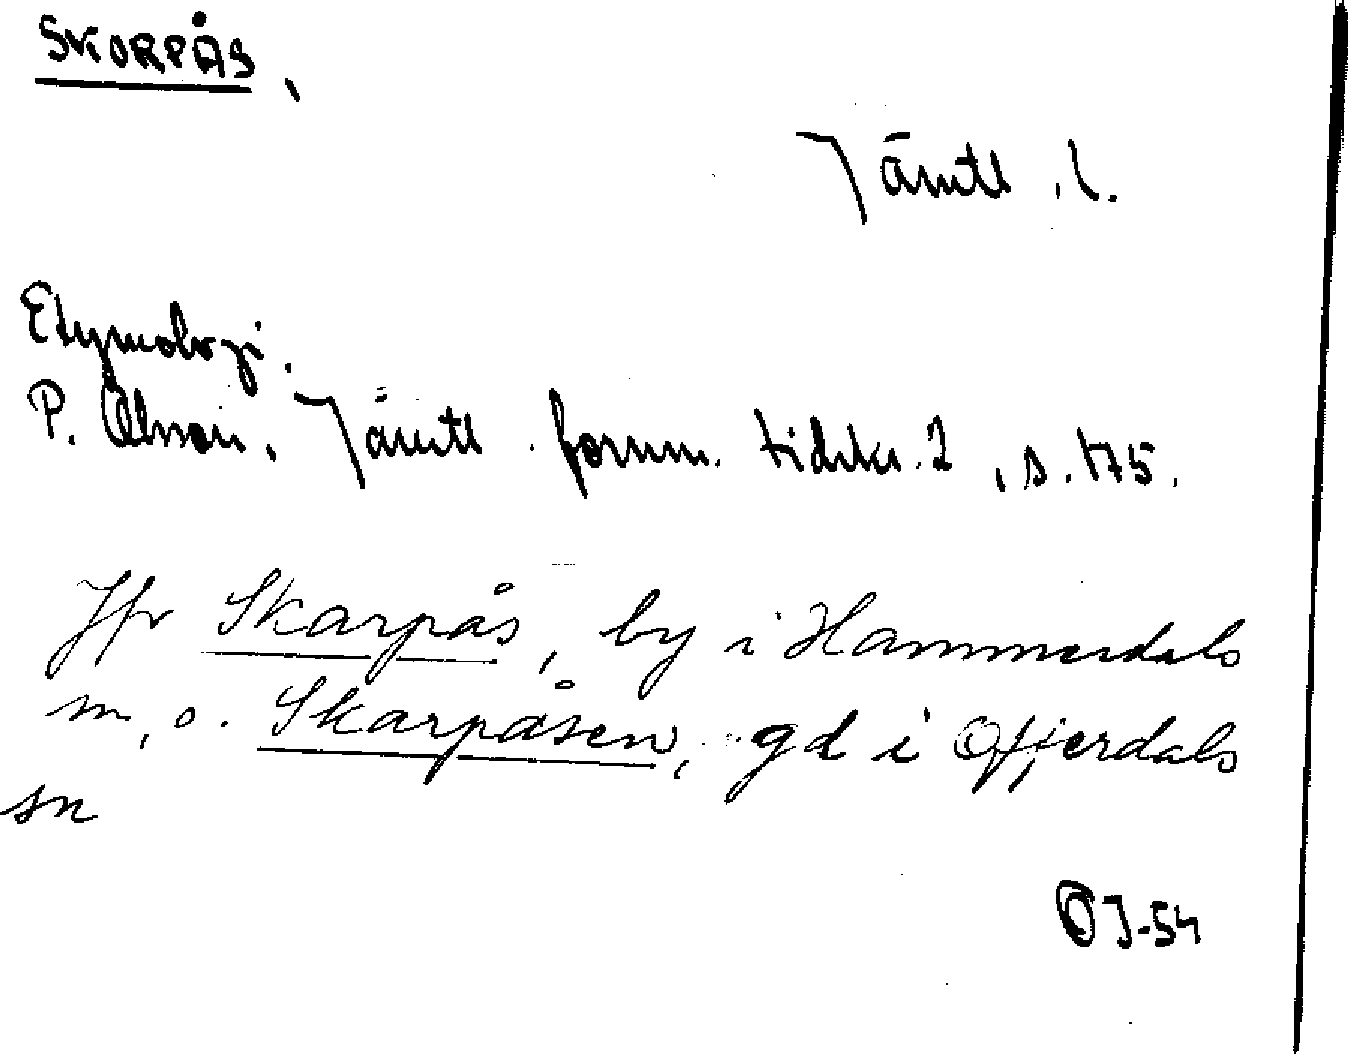 SKORPÅS,
Jämtl. l.
Etymologi.
P. Olsson, Jämtl. fornm. tidskr. 2, s. 175.
Jfr Skarpås, by i Hammerdals
sn, o. Skarpåsen, gd i Offerdals
sn
OJ-54